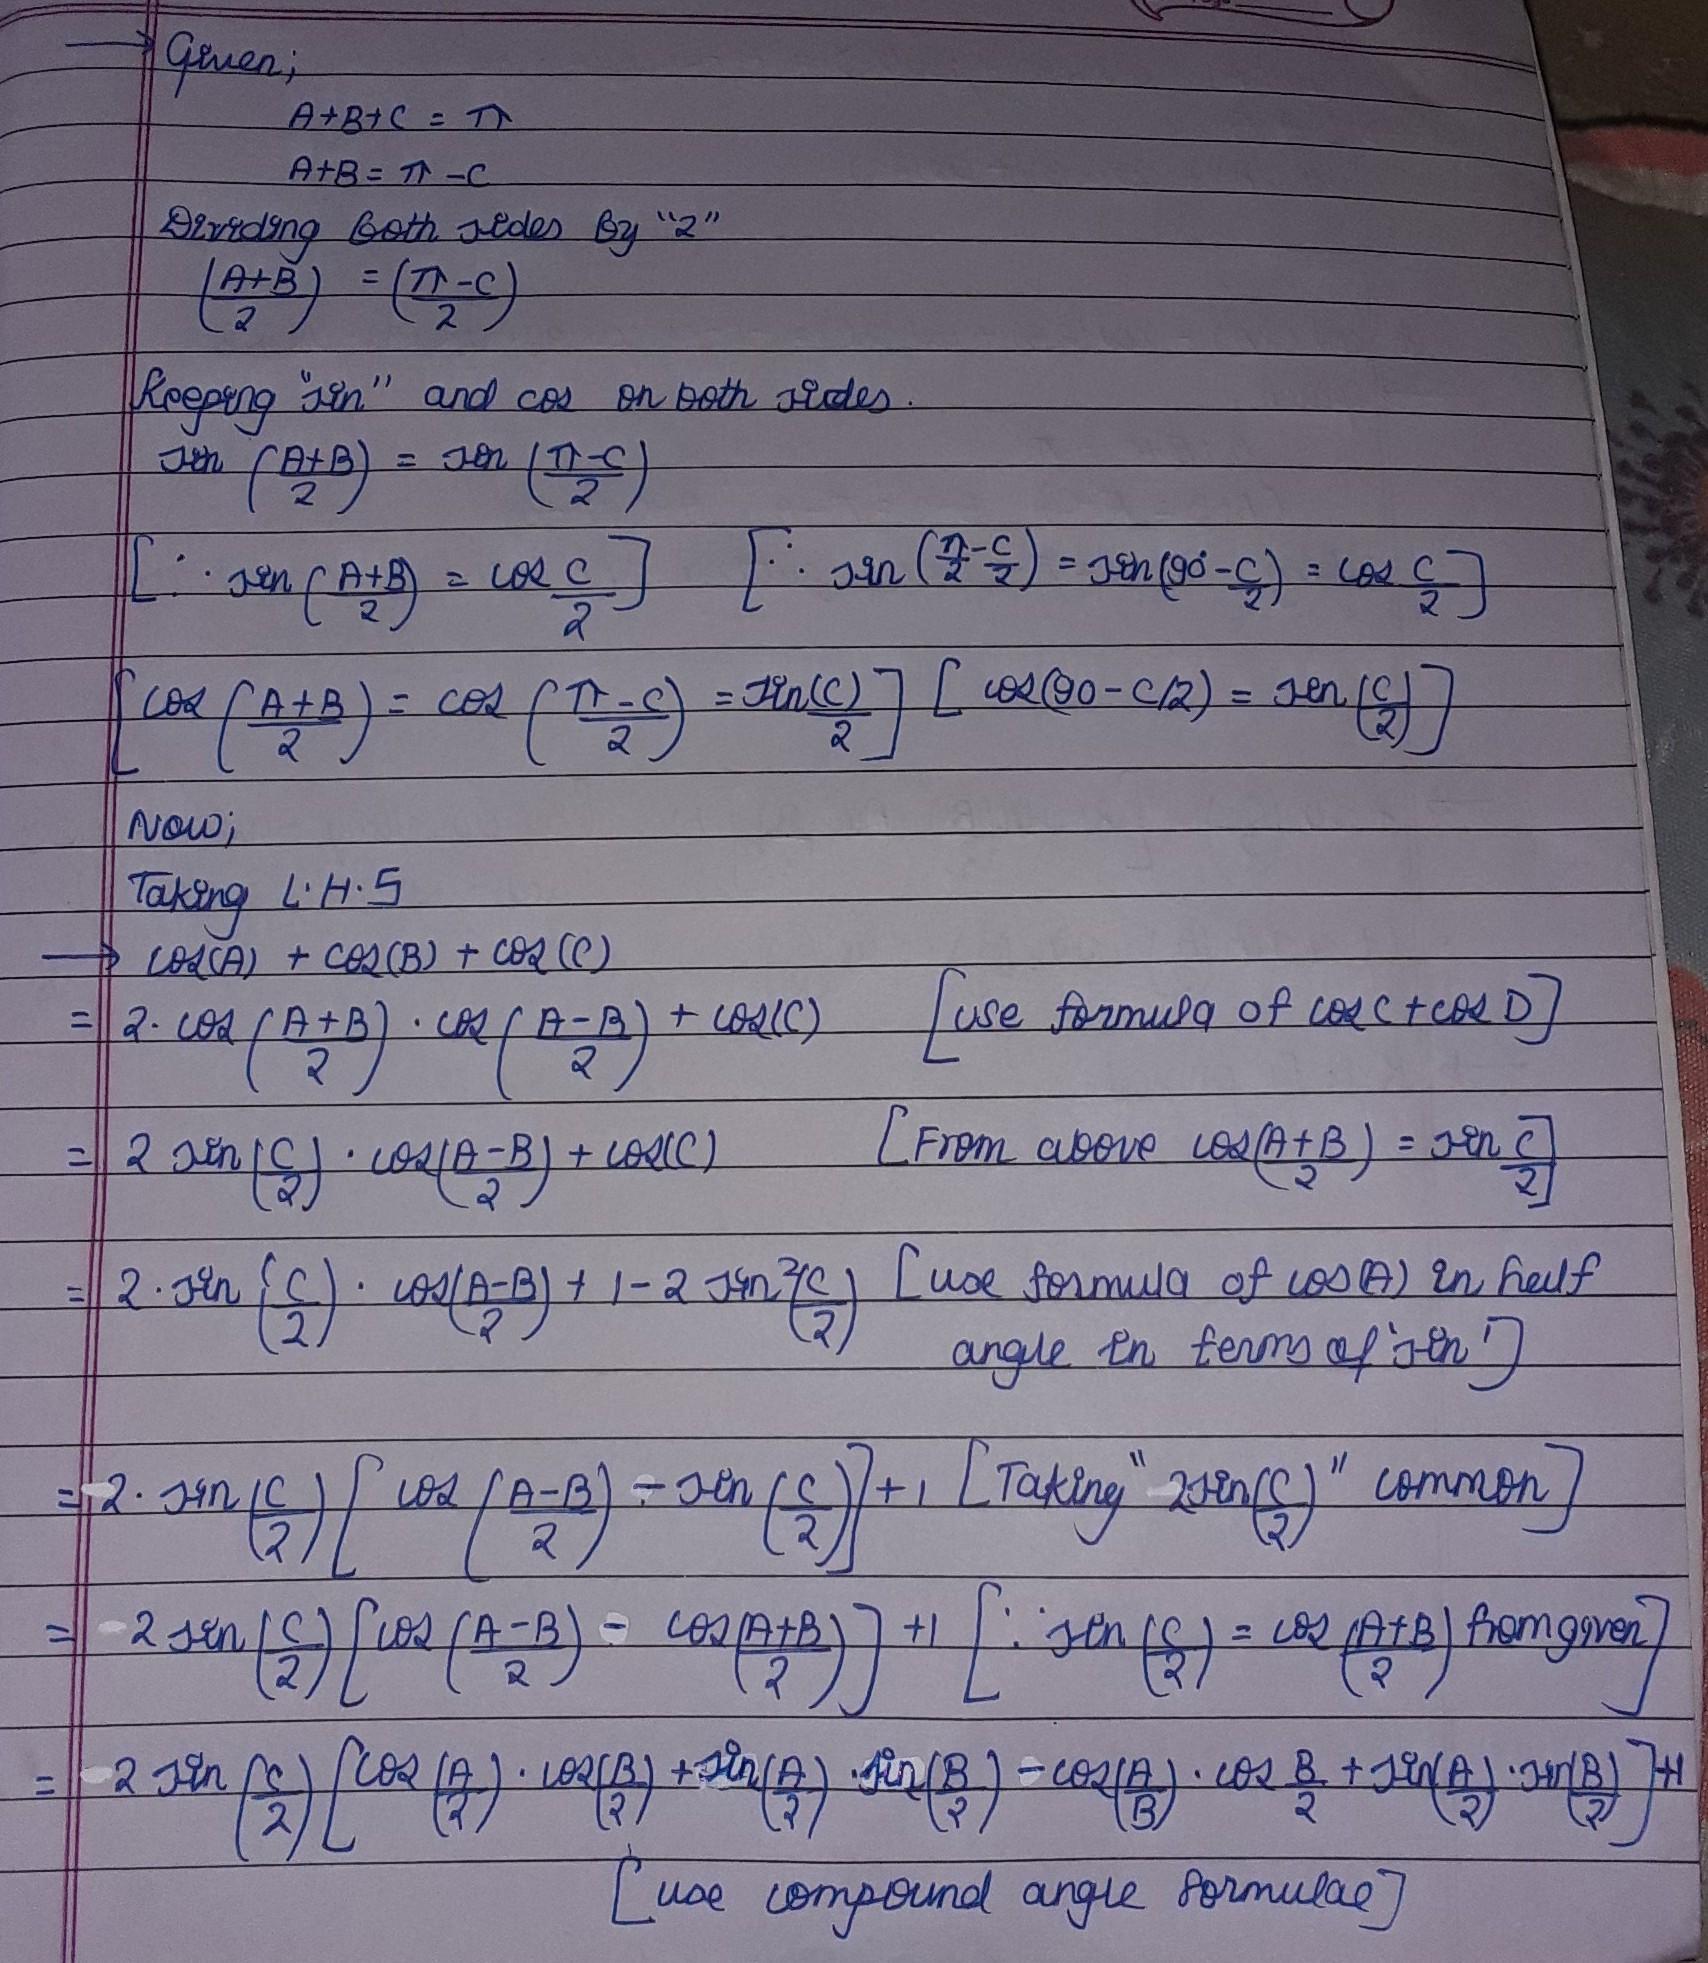 → Given;
A+B+C = π
A+B = π - C
Dividing both sides by "2"
(A+B/2) = (π-C/2)
Keeping "sin" and cos on both sides.
sin (A+B/2) = sin (π-C/2)
[∵ sin (A+B/2) = cos C/2] [∵ sin (π/2 - C/2) = sin(90° - C/2) = cos C/2]
[cos (A+B/2) = cos (π-C/2) = sin(C)/2] [cos(90 - C/2) = sin (C/2)]
Now;
Taking L.H.S
→ cos(A) + cos(B) + cos(C)
= 2. cos (A+B/2) . cos (A-B/2) + cos(C) [use formula of cos C + cos D]
= 2 sin (C/2) . cos (A-B/2) + cos(C) [From above cos (A+B/2) = sin C/2]
= 2. sin (C/2) . cos (A-B/2) + 1 - 2 sin² (C/2) [use formula of cos(A) in half
angle in terms of 'sin']
= 2. sin (C/2) [cos (A-B/2) - sin (C/2)] + 1 [Taking "2 sin (C/2)" common]
= 2 sin (C/2) [cos (A-B/2) - cos (A+B/2)] + 1 [∵ sin (C/2) = cos (A+B/2) from given]
= 2 sin (C/2) [cos (A/2) . cos (B/2) + sin (A/2) . sin (B/2) - cos (A/B) . cos B/2 + sin (A/2) . sin (B/2)] + 1
[use compound angle formulae]